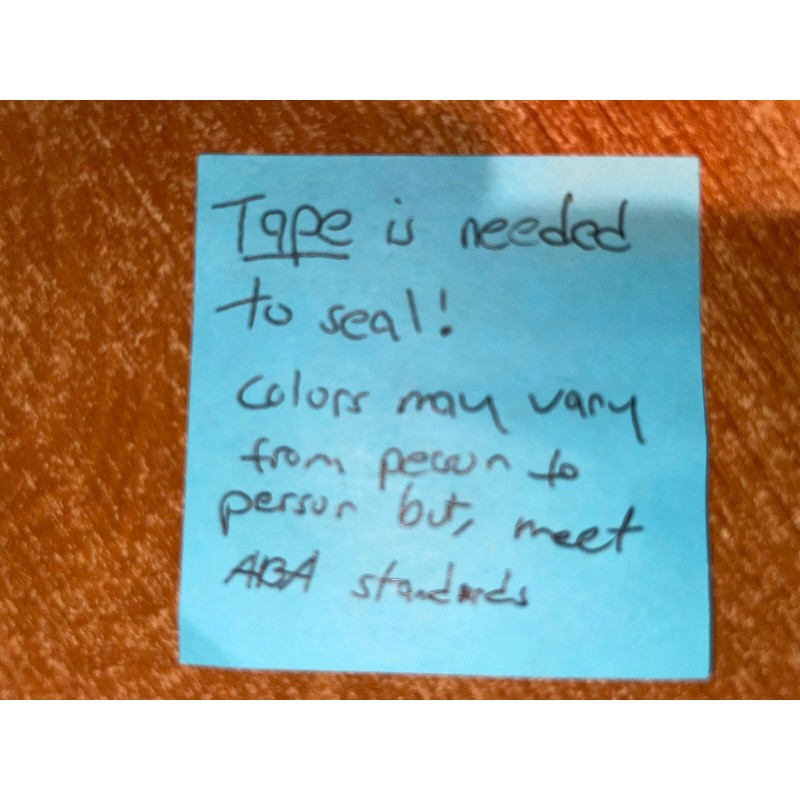 Tape is needed
to seal!
Colors may vary
from person to
person but, meet
ABA standards